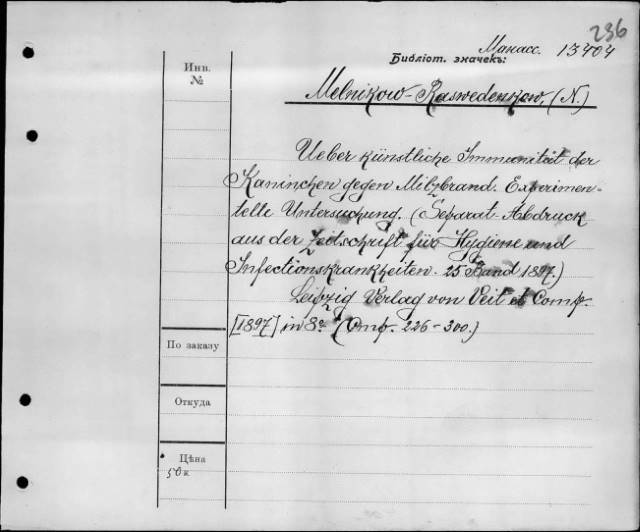 236
Манасс. 13404
Библіот. значекъ:
Инв.
№
Melnikow-Raswedenkow, (N.)
Ueber künstliche Immunität der
Kaninchen gegen Milzbrand. Experimen-
telle Untersuchung. (Separat-Abdruck
aus der Zeitschrift für Hygiene und
Infectionskrankheiten. 25 Band 1897.)
Leipzig Verlag von Veit et Comp.
[1897] in 8º (Стр. 226-300.)
По заказу
Откуда
Цѣна
50 к